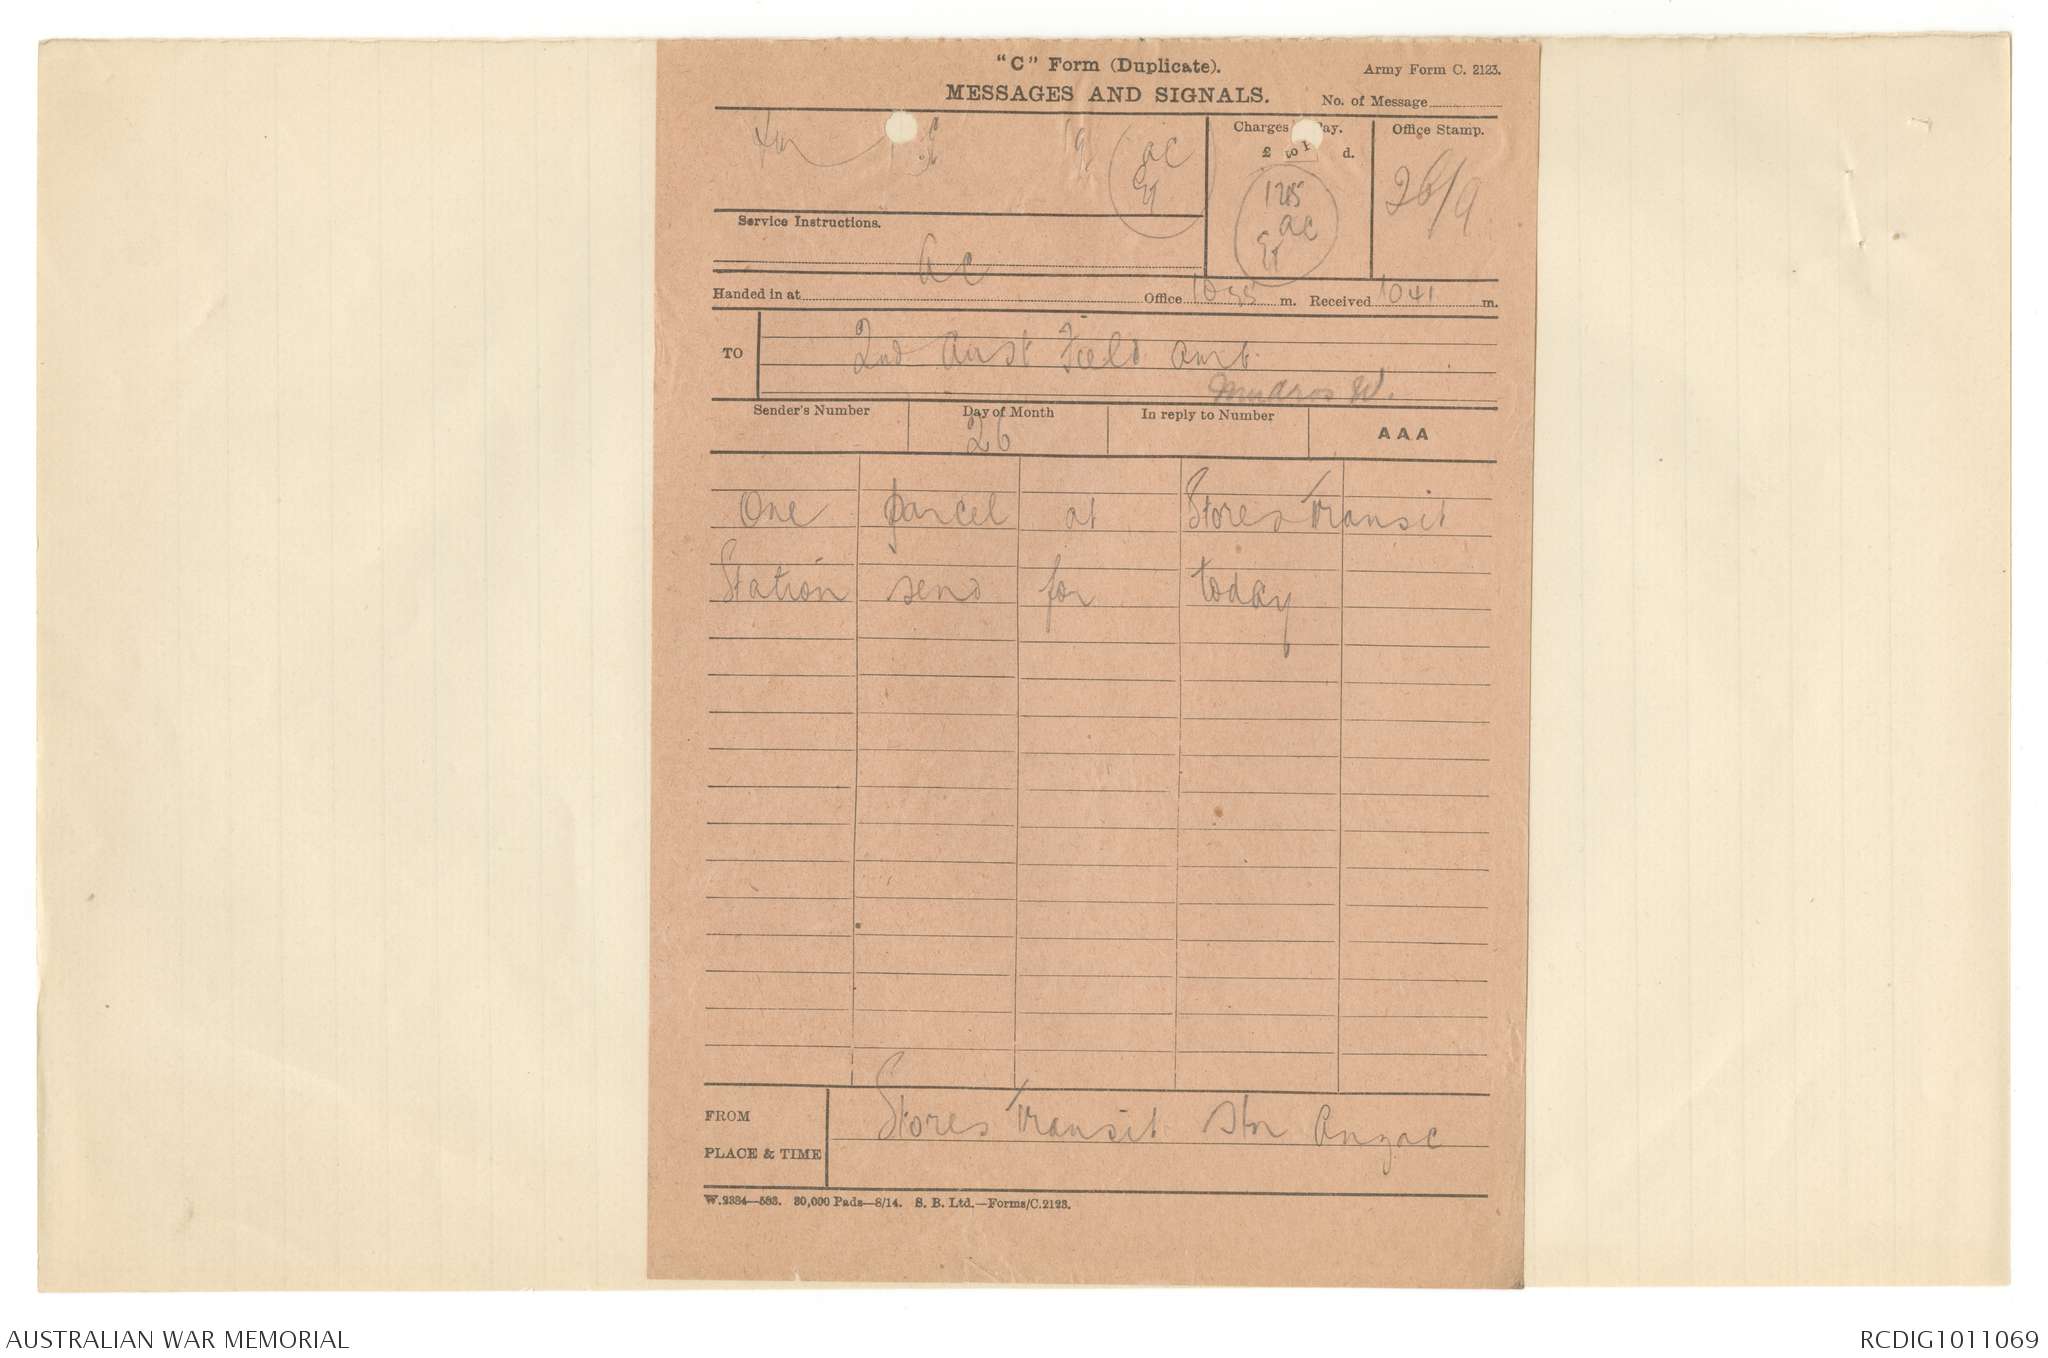 "C" Form (Duplicate).
Army Form C. 2123.
MESSAGES AND SIGNALS.
No. of Message
Charges Pay.
Office Stamp.
£ d.
19
ac
1215
ac
26/9
Service Instructions.
ac
Handed in at Office 1035 m. Received 1041 m.
TO
2nd Aust Field Amb.
Mudros W.
Sender's Number
Day of Month
In reply to Number
AAA
26
One parcel at Stores Transit
Station send for today
FROM
Stores Transit Stn Anzac
PLACE & TIME
W.2334—583. 30,000 Pads—8/14. S. B. Ltd.—Forms/C.2123.
AUSTRALIAN WAR MEMORIAL
RCDIG1011069